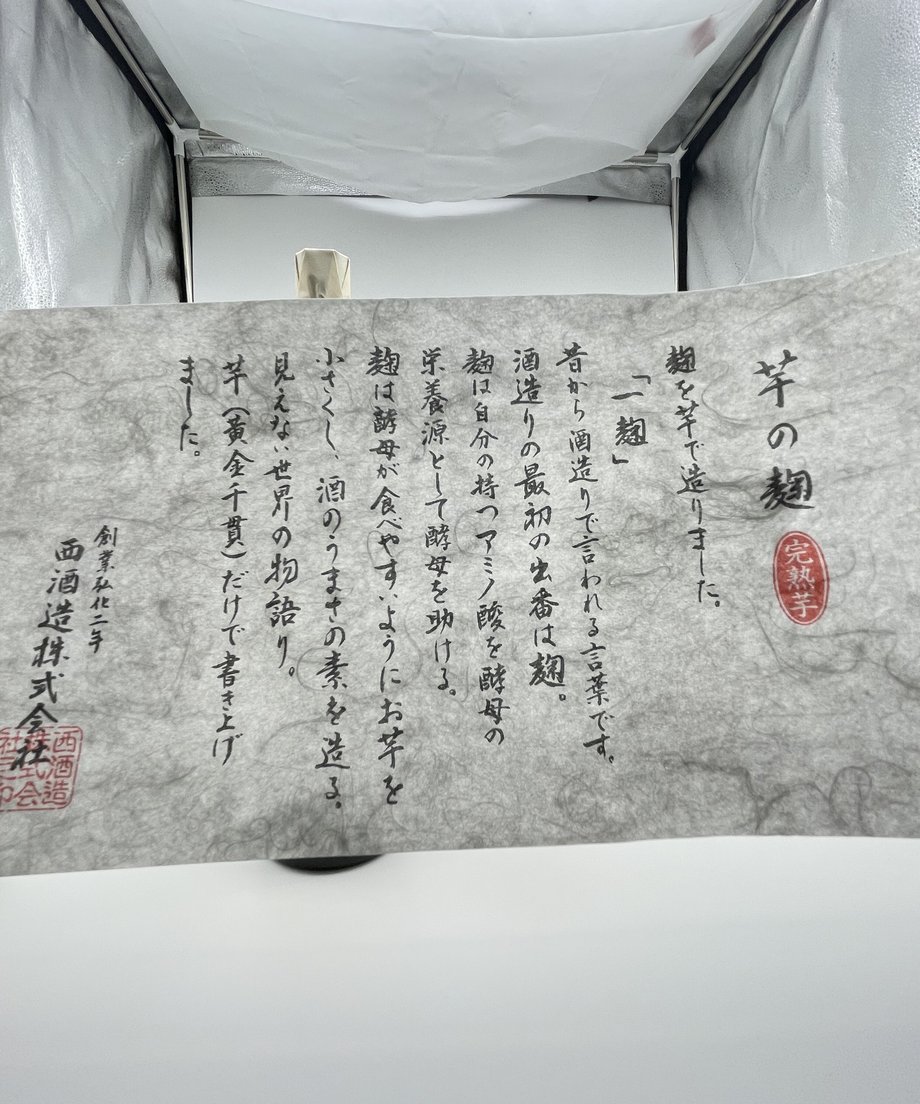 芋の麹
完熟芋
麹を芋で造りました。
「一麹」
昔から酒造りで言われる言葉です。
酒造りの最初の出番は麹。
麹は自分の持つアミノ酸を酵母の
栄養源として酵母を助ける。
麹は酵母が食べやすいようにお芋を
小さくし、酒のうまさの素を造る。
見えない世界の物語り。
芋(黄金千貫)だけで書き上げ
ました。
創業弘化二年
西酒造株式会社
西酒造
株式会
社之印